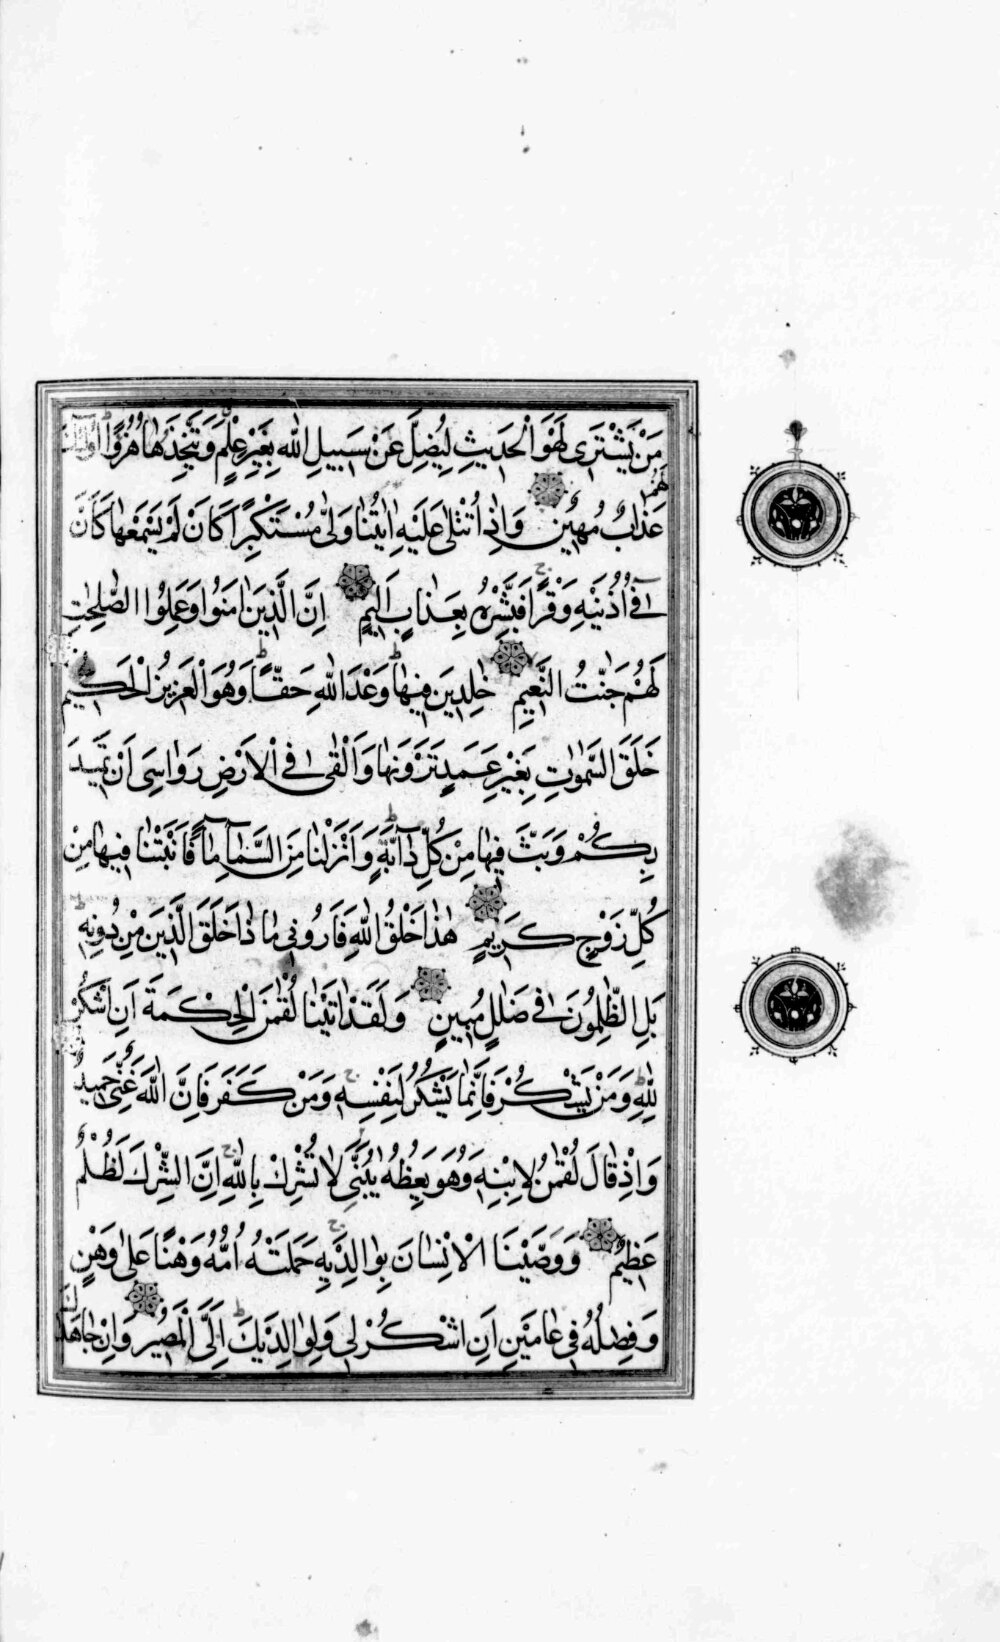 مَنْ يَشْتَرٖى لَهْوَ الْحَدٖيثِ لِيُضِلَّ عَنْ سَبٖيلِ اللّٰهِ بِغَيْرِ عِلْمٍ وَيَتَّخِذَهَا هُزُوًا اُولٰئِكَ
لَهُمْ عَذَابٌ مُهٖينٌ وَاِذَا تُتْلٰى عَلَيْهِ اٰيَاتُنَا وَلّٰى مُسْتَكْبِرًا كَاَنْ لَمْ يَسْمَعْهَا كَاَنَّ
فٖى اُذُنَيْهِ وَقْرًا فَبَشِّرْهُ بِعَذَابٍ اَلٖيمٍ اِنَّ الَّذٖينَ اٰمَنُوا وَعَمِلُوا الصَّالِحَاتِ
لَهُمْ جَنَّاتُ النَّعٖيمِ خَالِدٖينَ فٖيهَا وَعْدَ اللّٰهِ حَقًّا وَهُوَ الْعَزٖيزُ الْحَكٖيمُ
خَلَقَ السَّمٰوَاتِ بِغَيْرِ عَمَدٍ تَرَوْنَهَا وَاَلْقٰى فِى الْاَرْضِ رَوَاسِىَ اَنْ تَمٖيدَ
بِكُمْ وَبَثَّ فٖيهَا مِنْ كُلِّ دَآبَّةٍ وَاَنْزَلْنَا مِنَ السَّمَآءِ مَآءً فَاَنْبَتْنَا فٖيهَا مِنْ
كُلِّ زَوْجٍ كَرٖيمٍ هٰذَا خَلْقُ اللّٰهِ فَاَرُونٖى مَاذَا خَلَقَ الَّذٖينَ مِنْ دُونِهٖ
بَلِ الظَّالِمُونَ فٖى ضَلَالٍ مُبٖينٍ وَلَقَدْ اٰتَيْنَا لُقْمٰنَ الْحِكْمَةَ اَنِ اشْكُرْ
لِلّٰهِ وَمَنْ يَشْكُرْ فَاِنَّمَا يَشْكُرُ لِنَفْسِهٖ وَمَنْ كَفَرَ فَاِنَّ اللّٰهَ غَنِىٌّ حَمٖيدٌ
وَاِذْ قَالَ لُقْمٰنُ لِابْنِهٖ وَهُوَ يَعِظُهُ يَا بُنَىَّ لَا تُشْرِكْ بِاللّٰهِ اِنَّ الشِّرْكَ لَظُلْمٌ
عَظٖيمٌ وَوَصَّيْنَا الْاِنْسَانَ بِوَالِدَيْهِ حَمَلَتْهُ اُمُّهُ وَهْنًا عَلٰى وَهْنٍ
وَفِصَالُهُ فٖى عَامَيْنِ اَنِ اشْكُرْ لٖى وَلِوَالِدَيْكَ اِلَىَّ الْمَصٖيرُ وَاِنْ جَاهَدَاكَ